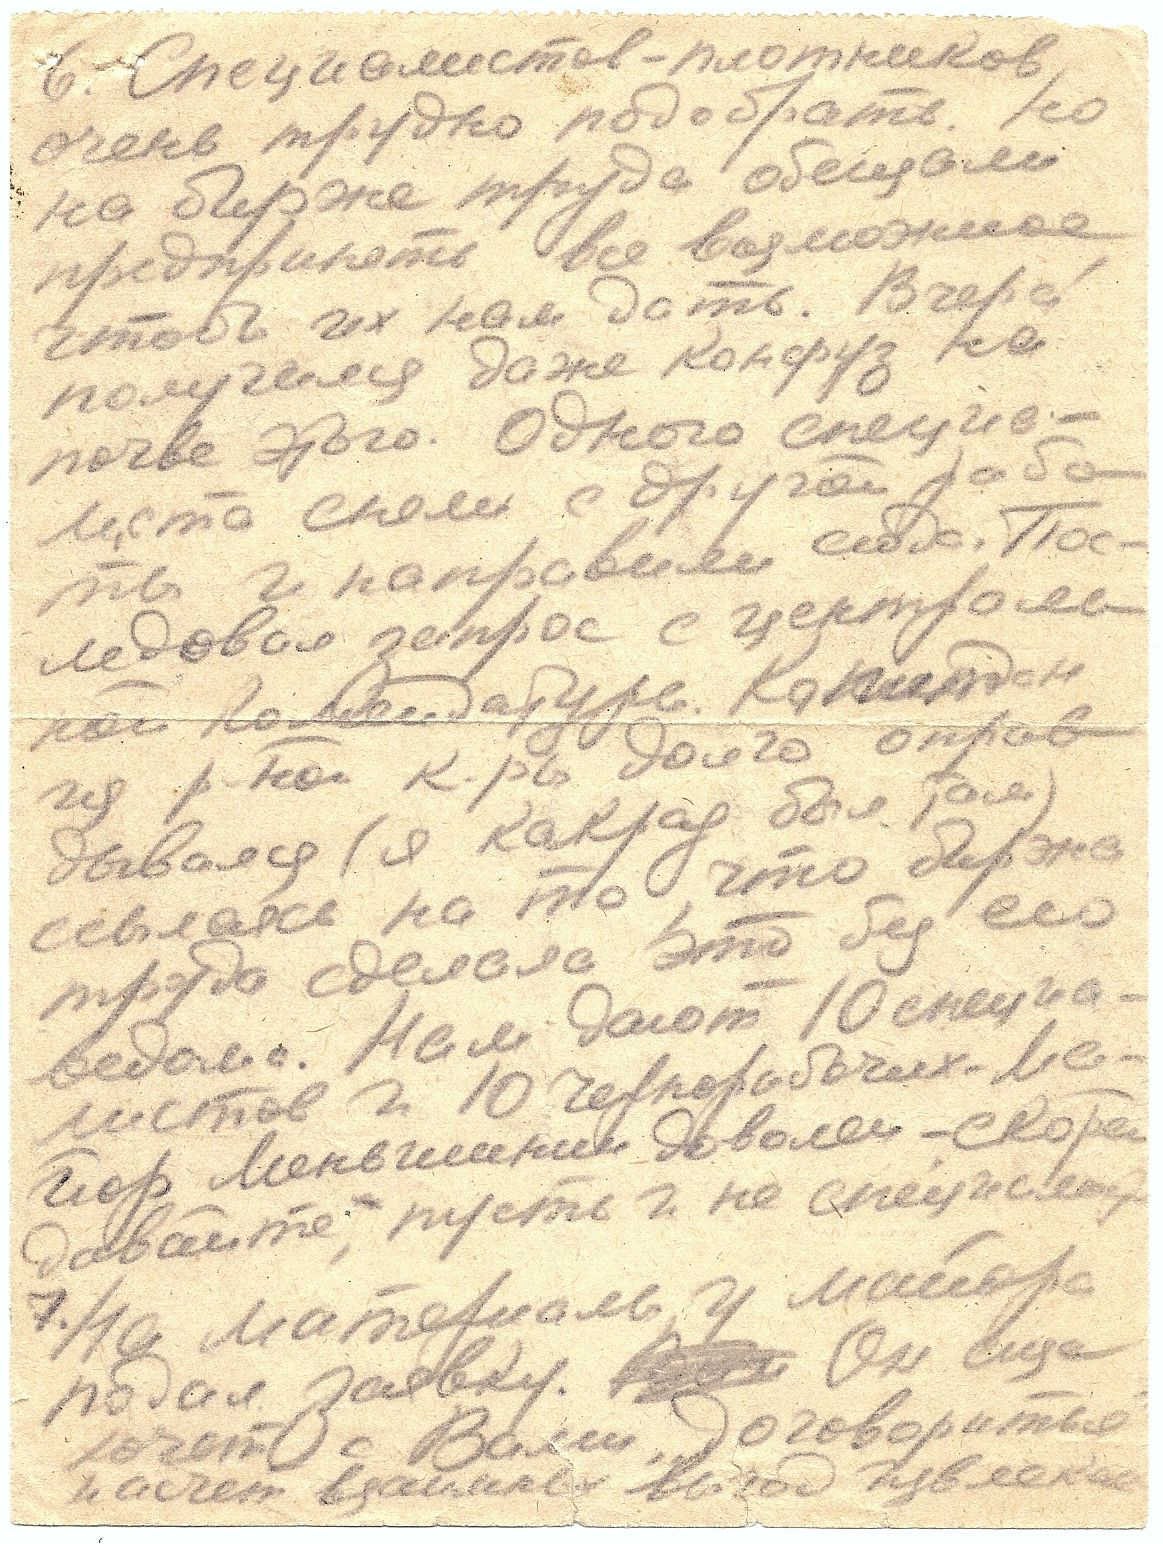 6. Специалистов-плотников
очень трудно подобрать. Но
на бирже труда обещали
предпринять все возможное,
чтобы их нам дать. Вчера
получился даже конфуз на
почве этого. Одного специа-
листа сняли с другой рабо
ты и направили сюда. Пос-
ледовал запрос с централь
ной комендатуры. Капитан
из р-ной к-ры долго оправ
дывался (я как раз был там)
ссылаясь на то, что биржа
труда сделала это без его
ведома. Нам дают 10 специа-
листов и 10 чернорабочих. Ма-
йор Меньшинин доволен - скорей
давайте, пусть и не специалист
7. На материалы у майора
подал заявку. Он еще
хочет с Вами договориться
насчет взаимных выгод извлекаем